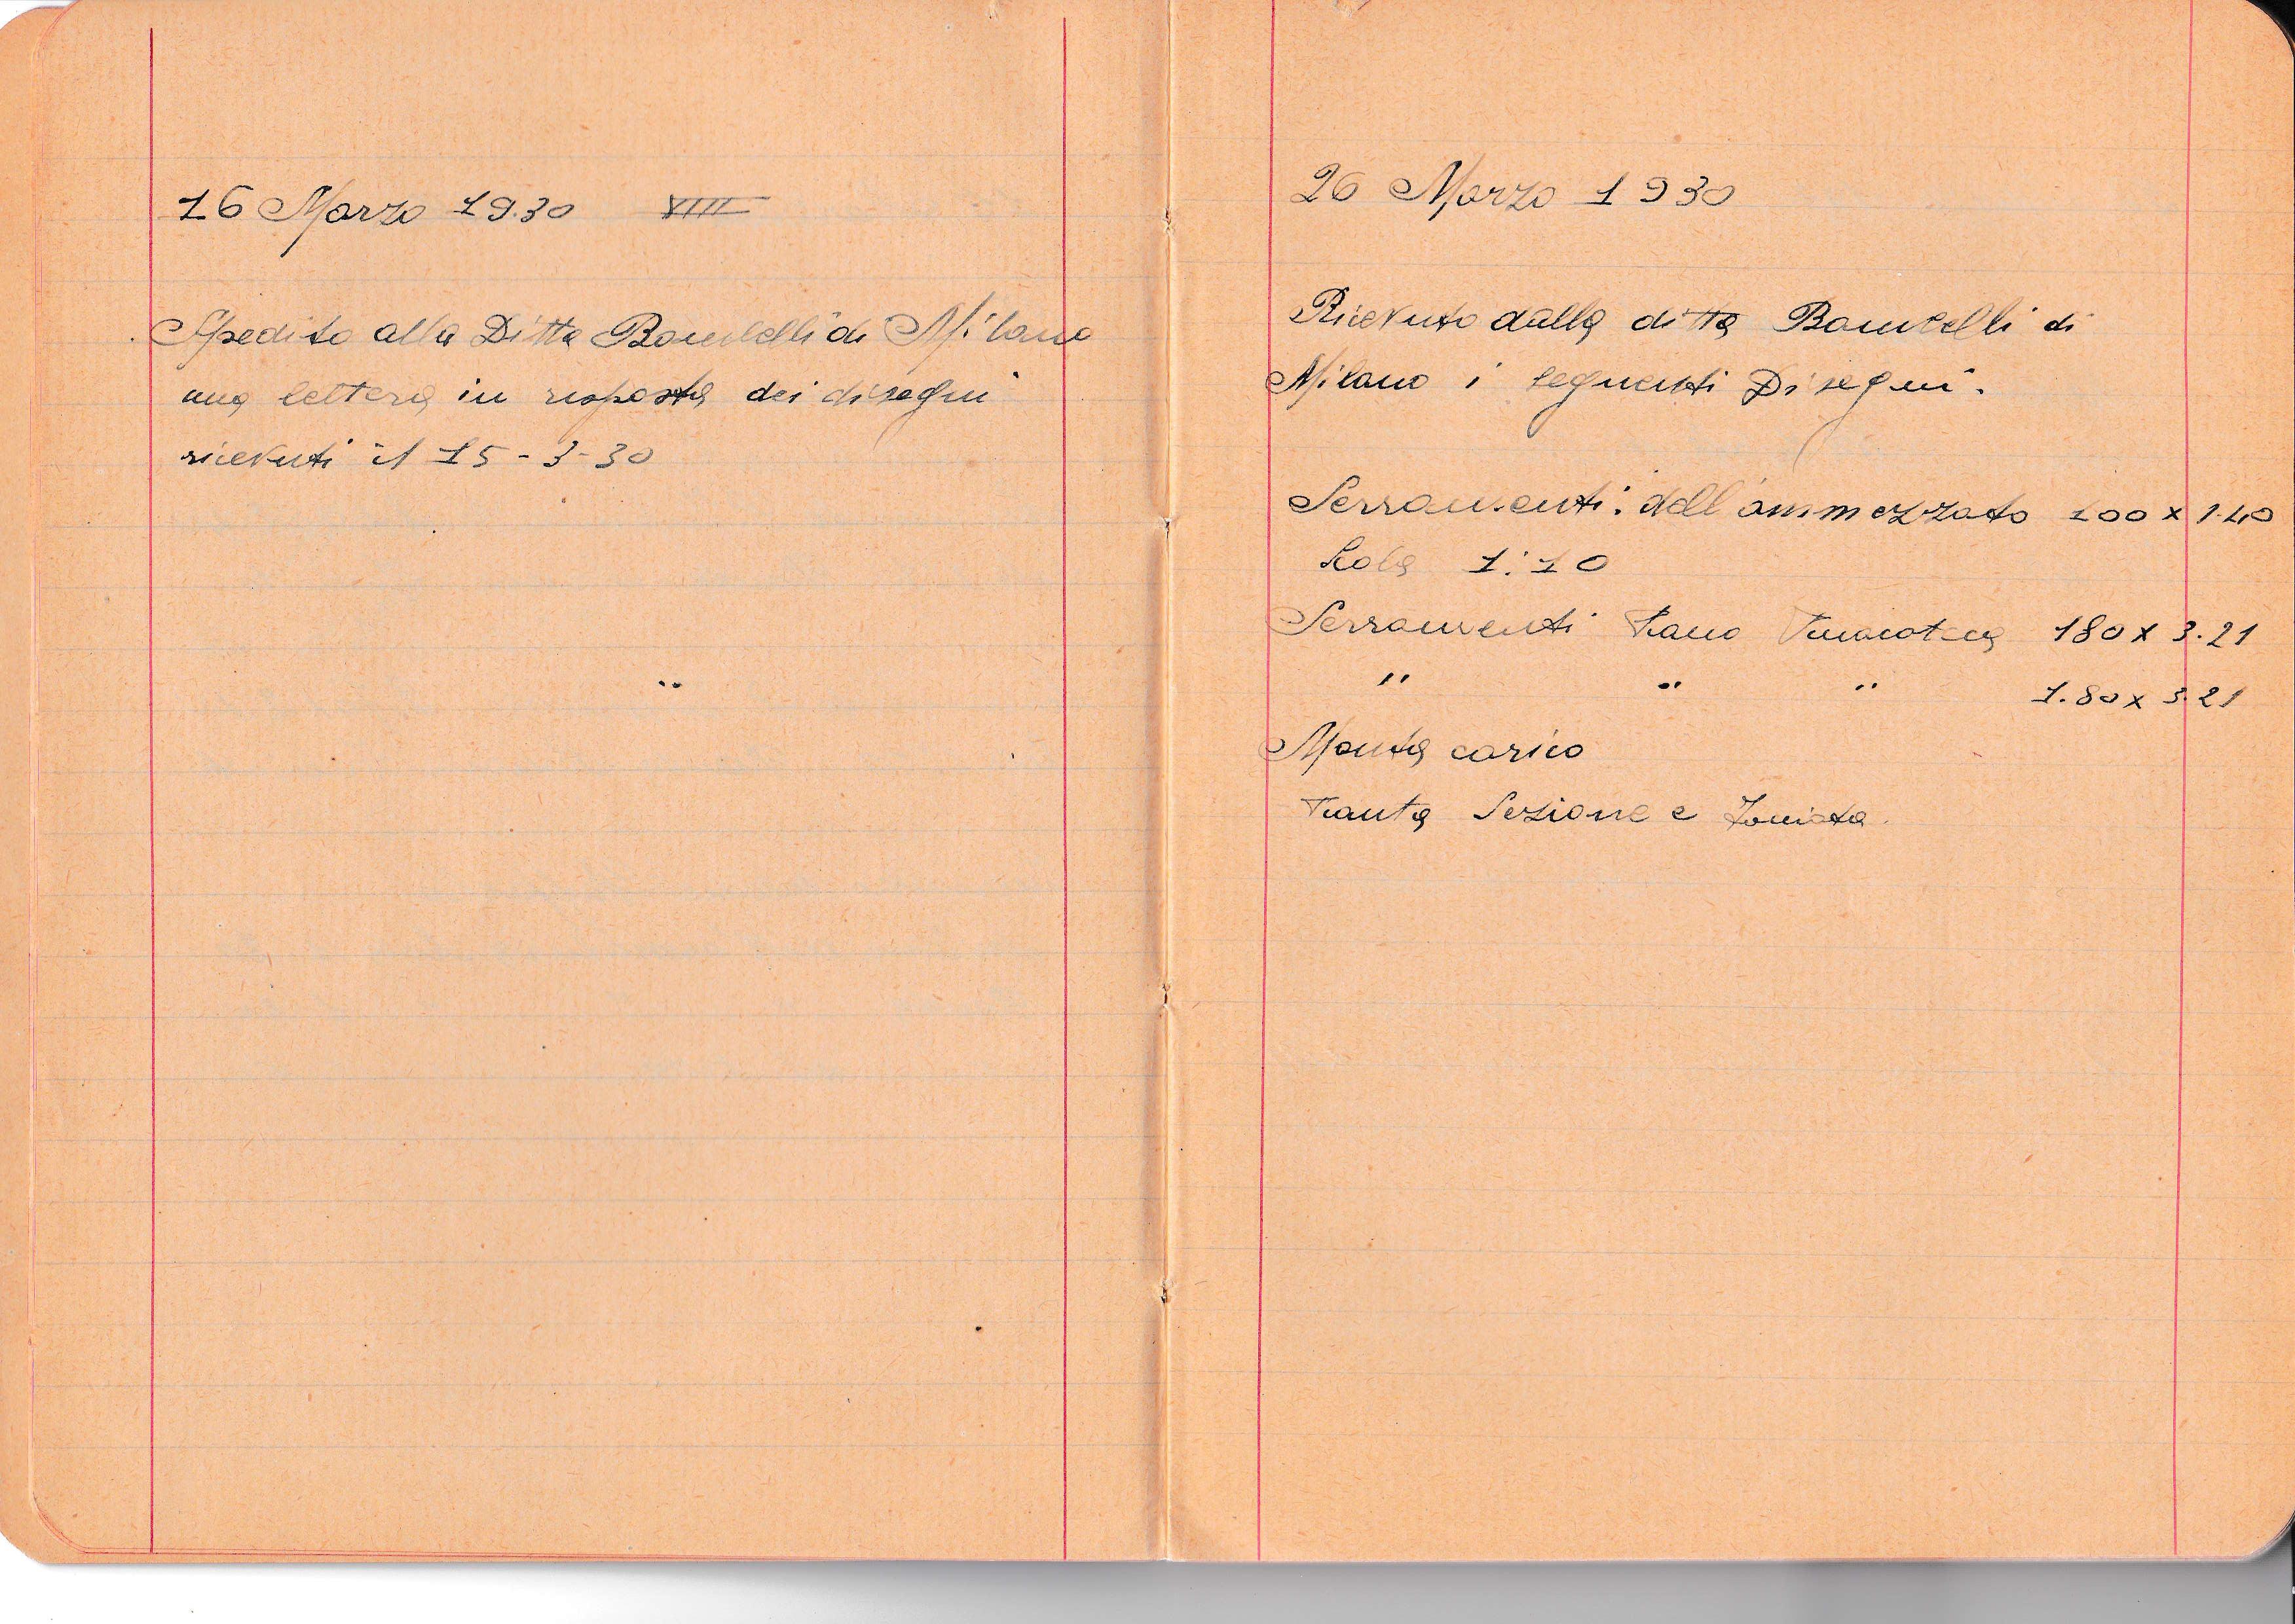 16 Marzo 19.30 VIII
Spedito alla Ditta Bombelli di Milano
una lettera in risposta dei disegni
ricevuti il 15-3-30
26 Marzo 1930
Ricevuto dalla ditta Bombelli di
Milano i seguenti Disegni.
Serramenti. dell'ammezzato 100 x 1.40
Scala 1:10
Serramenti Piano Pinacoteca 180 x 3.21
" " " 1.80 x 3.21
Monta carico
Pianta Sezione e